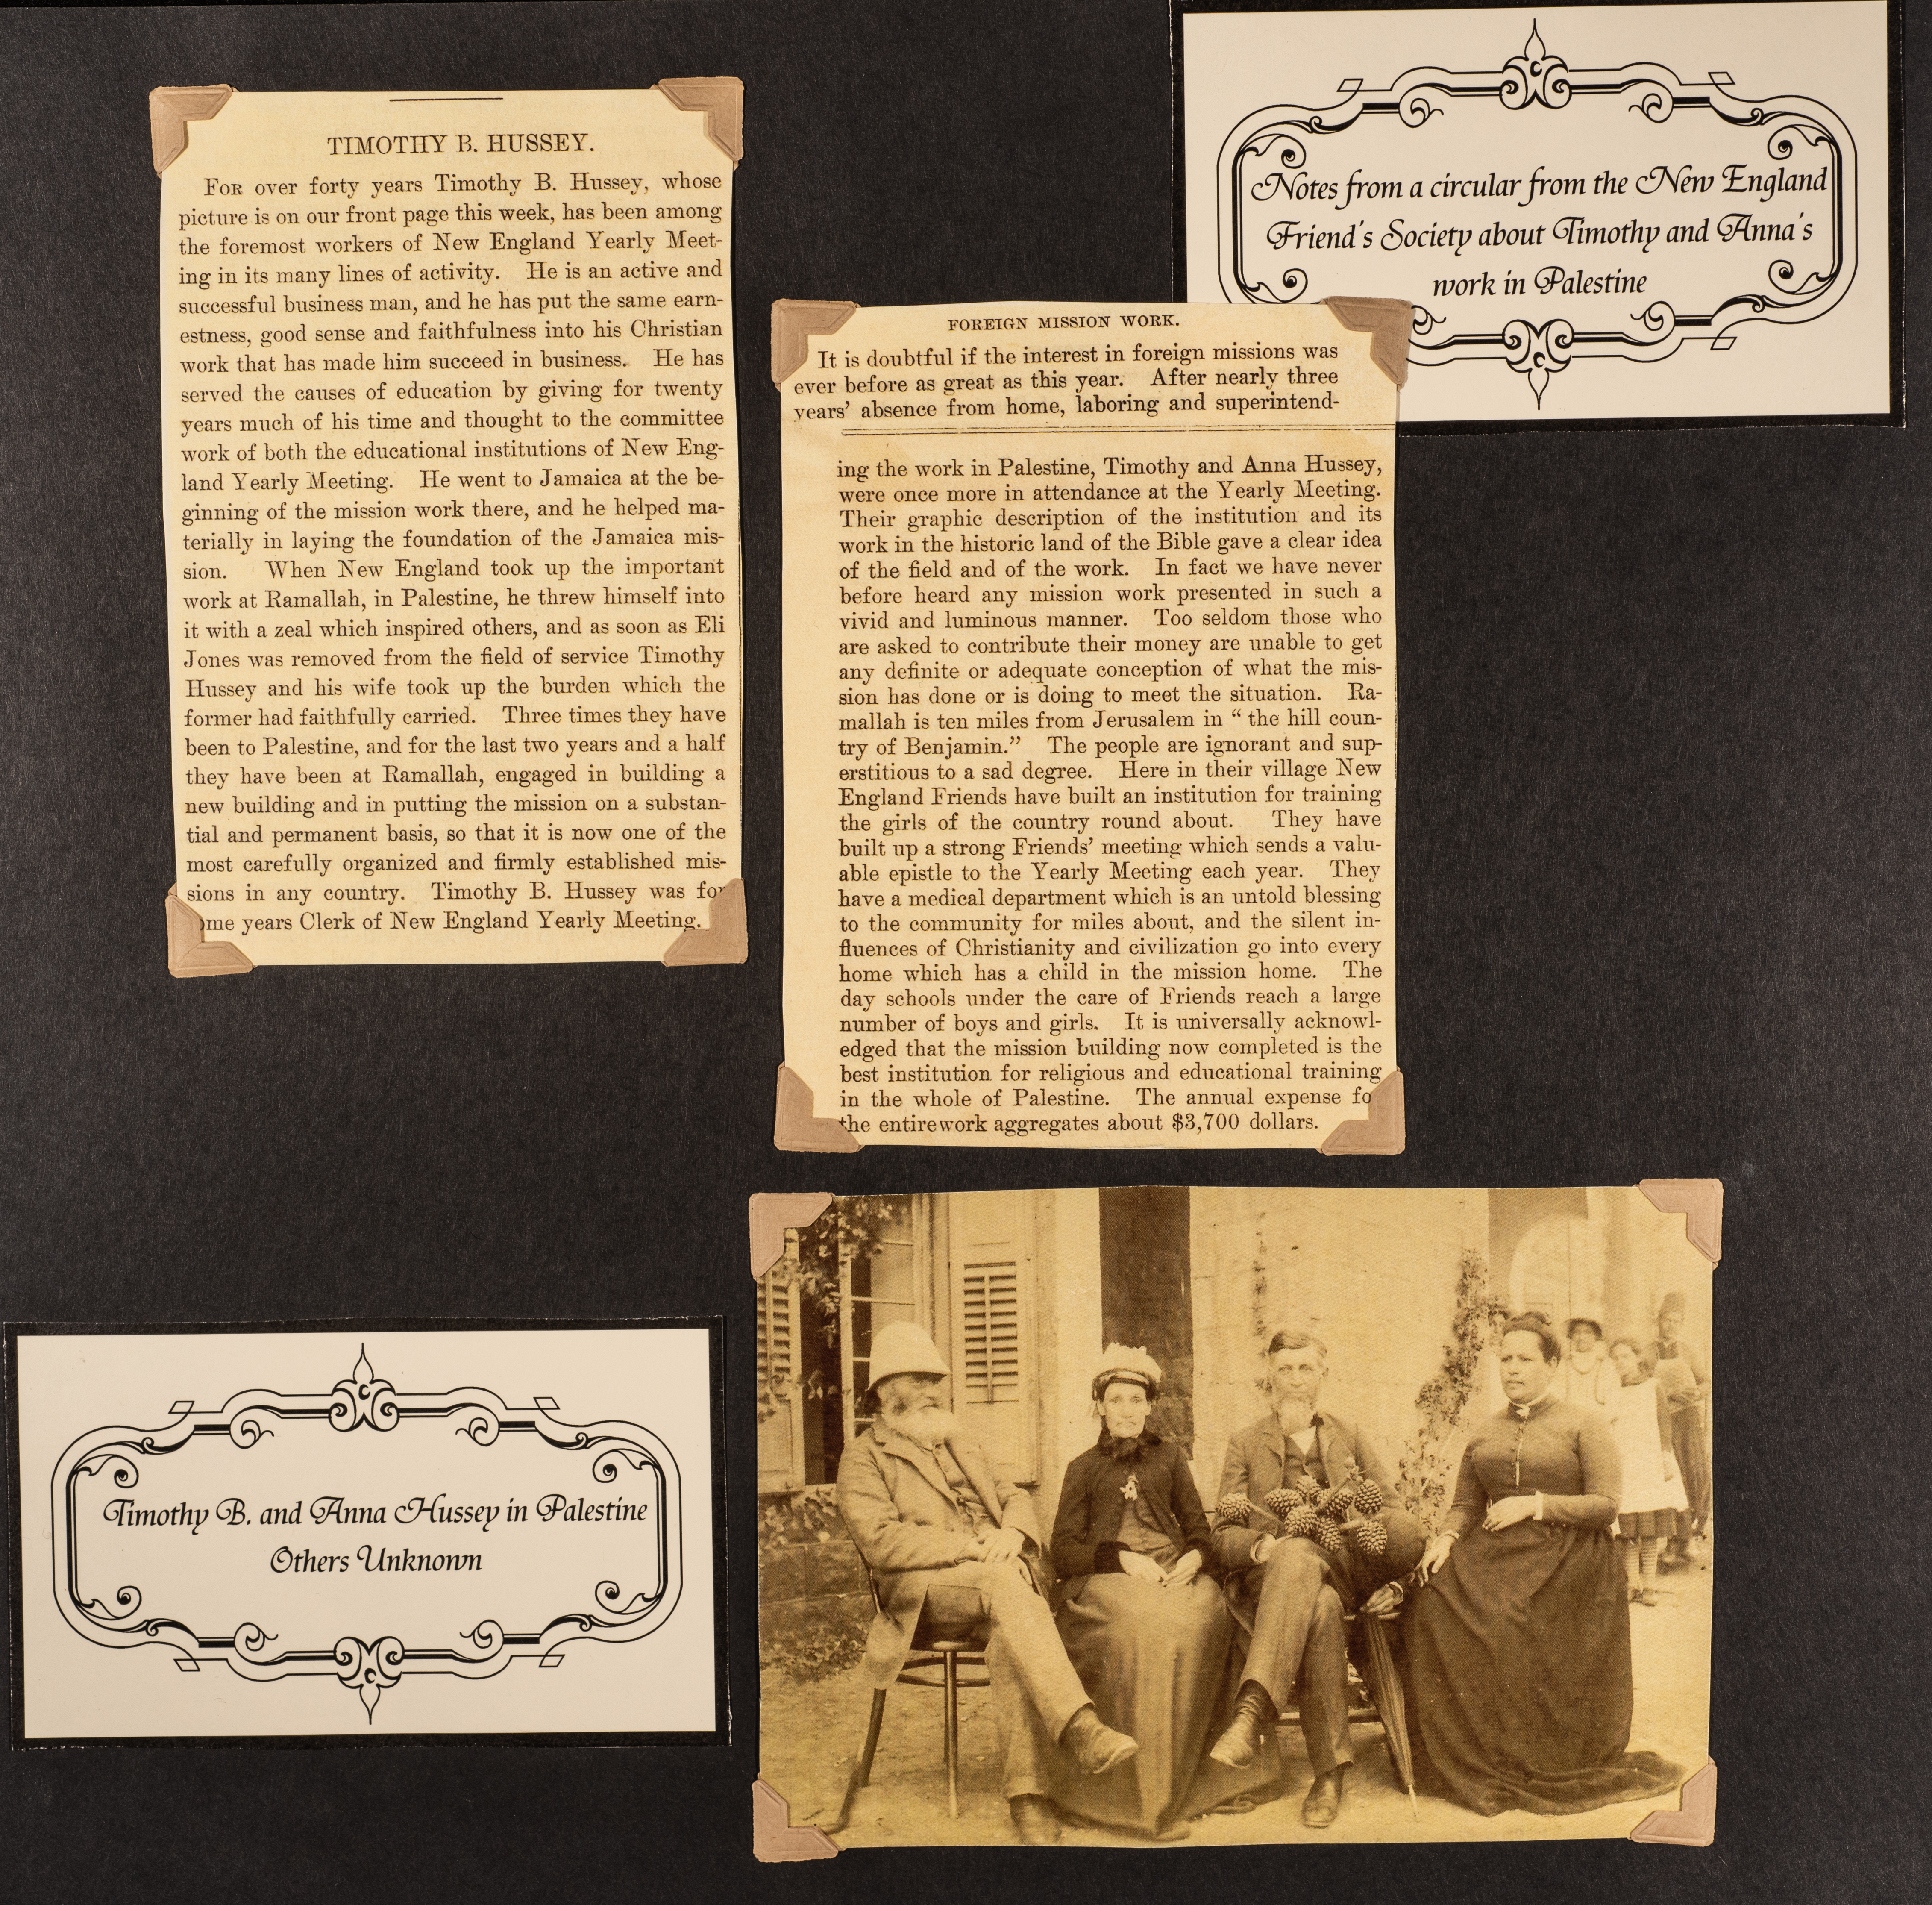 TIMOTHY B. HUSSEY.
FOR over forty years Timothy B. Hussey, whose
picture is on our front page this week, has been among
the foremost workers of New England Yearly Meet-
ing in its many lines of activity. He is an active and
successful business man, and he has put the same earn-
estness, good sense and faithfulness into his Christian
work that has made him succeed in business. He has
served the causes of education by giving for twenty
years much of his time and thought to the committee
work of both the educational institutions of New Eng-
land Yearly Meeting. He went to Jamaica at the be-
ginning of the mission work there, and he helped ma-
terially in laying the foundation of the Jamaica mis-
sion. When New England took up the important
work at Ramallah, in Palestine, he threw himself into
it with a zeal which inspired others, and as soon as Eli
Jones was removed from the field of service Timothy
Hussey and his wife took up the burden which the
former had faithfully carried. Three times they have
been to Palestine, and for the last two years and a half
they have been at Ramallah, engaged in building a
new building and in putting the mission on a substan-
tial and permanent basis, so that it is now one of the
most carefully organized and firmly established mis-
sions in any country. Timothy B. Hussey was for
ome years Clerk of New England Yearly Meeting.
Notes from a circular from the New England
Friend's Society about Timothy and Anna's
work in Palestine
FOREIGN MISSION WORK.
It is doubtful if the interest in foreign missions was
ever before as great as this year. After nearly three
years' absence from home, laboring and superintend-
ing the work in Palestine, Timothy and Anna Hussey,
were once more in attendance at the Yearly Meeting.
Their graphic description of the institution and its
work in the historic land of the Bible gave a clear idea
of the field and of the work. In fact we have never
before heard any mission work presented in such a
vivid and luminous manner. Too seldom those who
are asked to contribute their money are unable to get
any definite or adequate conception of what the mis-
sion has done or is doing to meet the situation. Ra-
mallah is ten miles from Jerusalem in " the hill coun-
try of Benjamin." The people are ignorant and sup-
erstitious to a sad degree. Here in their village New
England Friends have built an institution for training
the girls of the country round about. They have
built up a strong Friends' meeting which sends a valu-
able epistle to the Yearly Meeting each year. They
have a medical department which is an untold blessing
to the community for miles about, and the silent in-
fluences of Christianity and civilization go into every
home which has a child in the mission home. The
day schools under the care of Friends reach a large
number of boys and girls. It is universally acknowl-
edged that the mission building now completed is the
best institution for religious and educational training
in the whole of Palestine. The annual expense fo
the entire work aggregates about $3,700 dollars.
Timothy B. and Anna Hussey in Palestine
Others Unknown